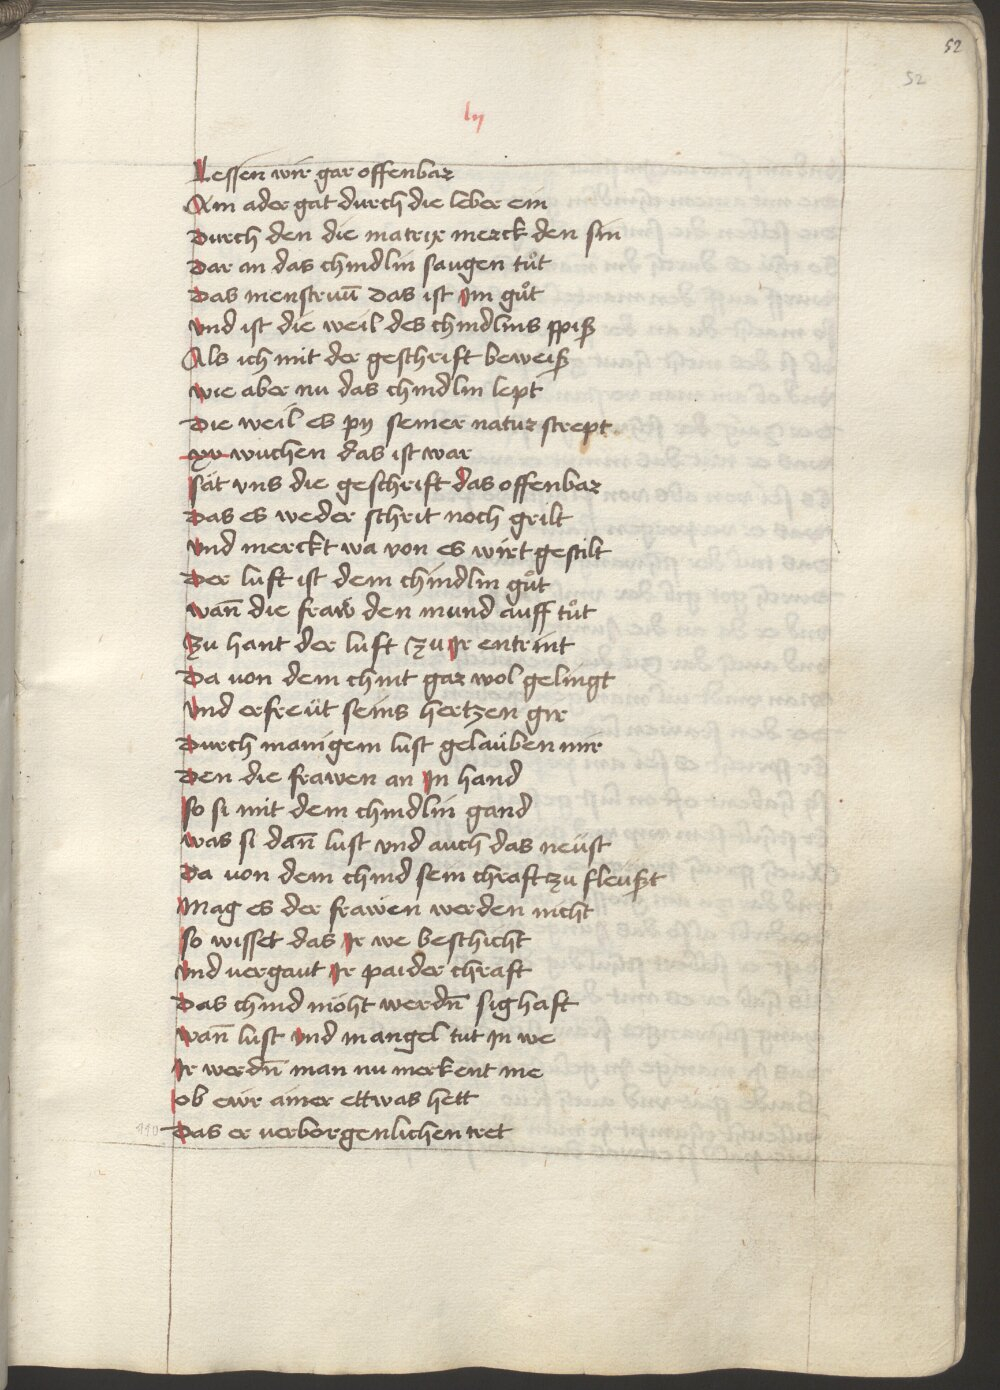 52
52
lij
Lessen wir gar offenbar
Ain ader gat durch die leber ein
Durch den die matrix merck den sin
Dar an das chindlin saugen tůt
Das menstruū das ist im gůt
Vnd ist die weil des chindlins spiß
Als ich mit der geschrift beweiß
Wie aber nu das chindlin lept
Die weil es yn seiner natur strept
xv wuchen das ist war
Sät vns die geschrift das offenbar
Das es weder schrit noch grilt
Vnd merckt wa von es wirt gestilt
Der luft ist dem chindlin gůt
Wañ die fraw den mund auff tůt
Zu hant der luft zu ir entrint
Da von dem chint gar wol gelingt
Vnd erfreüt seins hertzen gir
Durch manigem lust gelaüben mir
Den die frawen an in hand
So si mit dem chindlin gand
Was si dañ lust vnd auch das neüst
Da von dem chind sein chraft zu fleüßt
Mag es der frawen werden nicht
So wisset das ir we beschicht
Vnd vergaut ir paider chraft
Das chind möht werdn̄ sighaft
Wañ lust vnd mangel tut in we
Ir werdn̄ man nu merkent me
Ob ewr ainer ettwas hett
Das er verborgenlichen tret
110